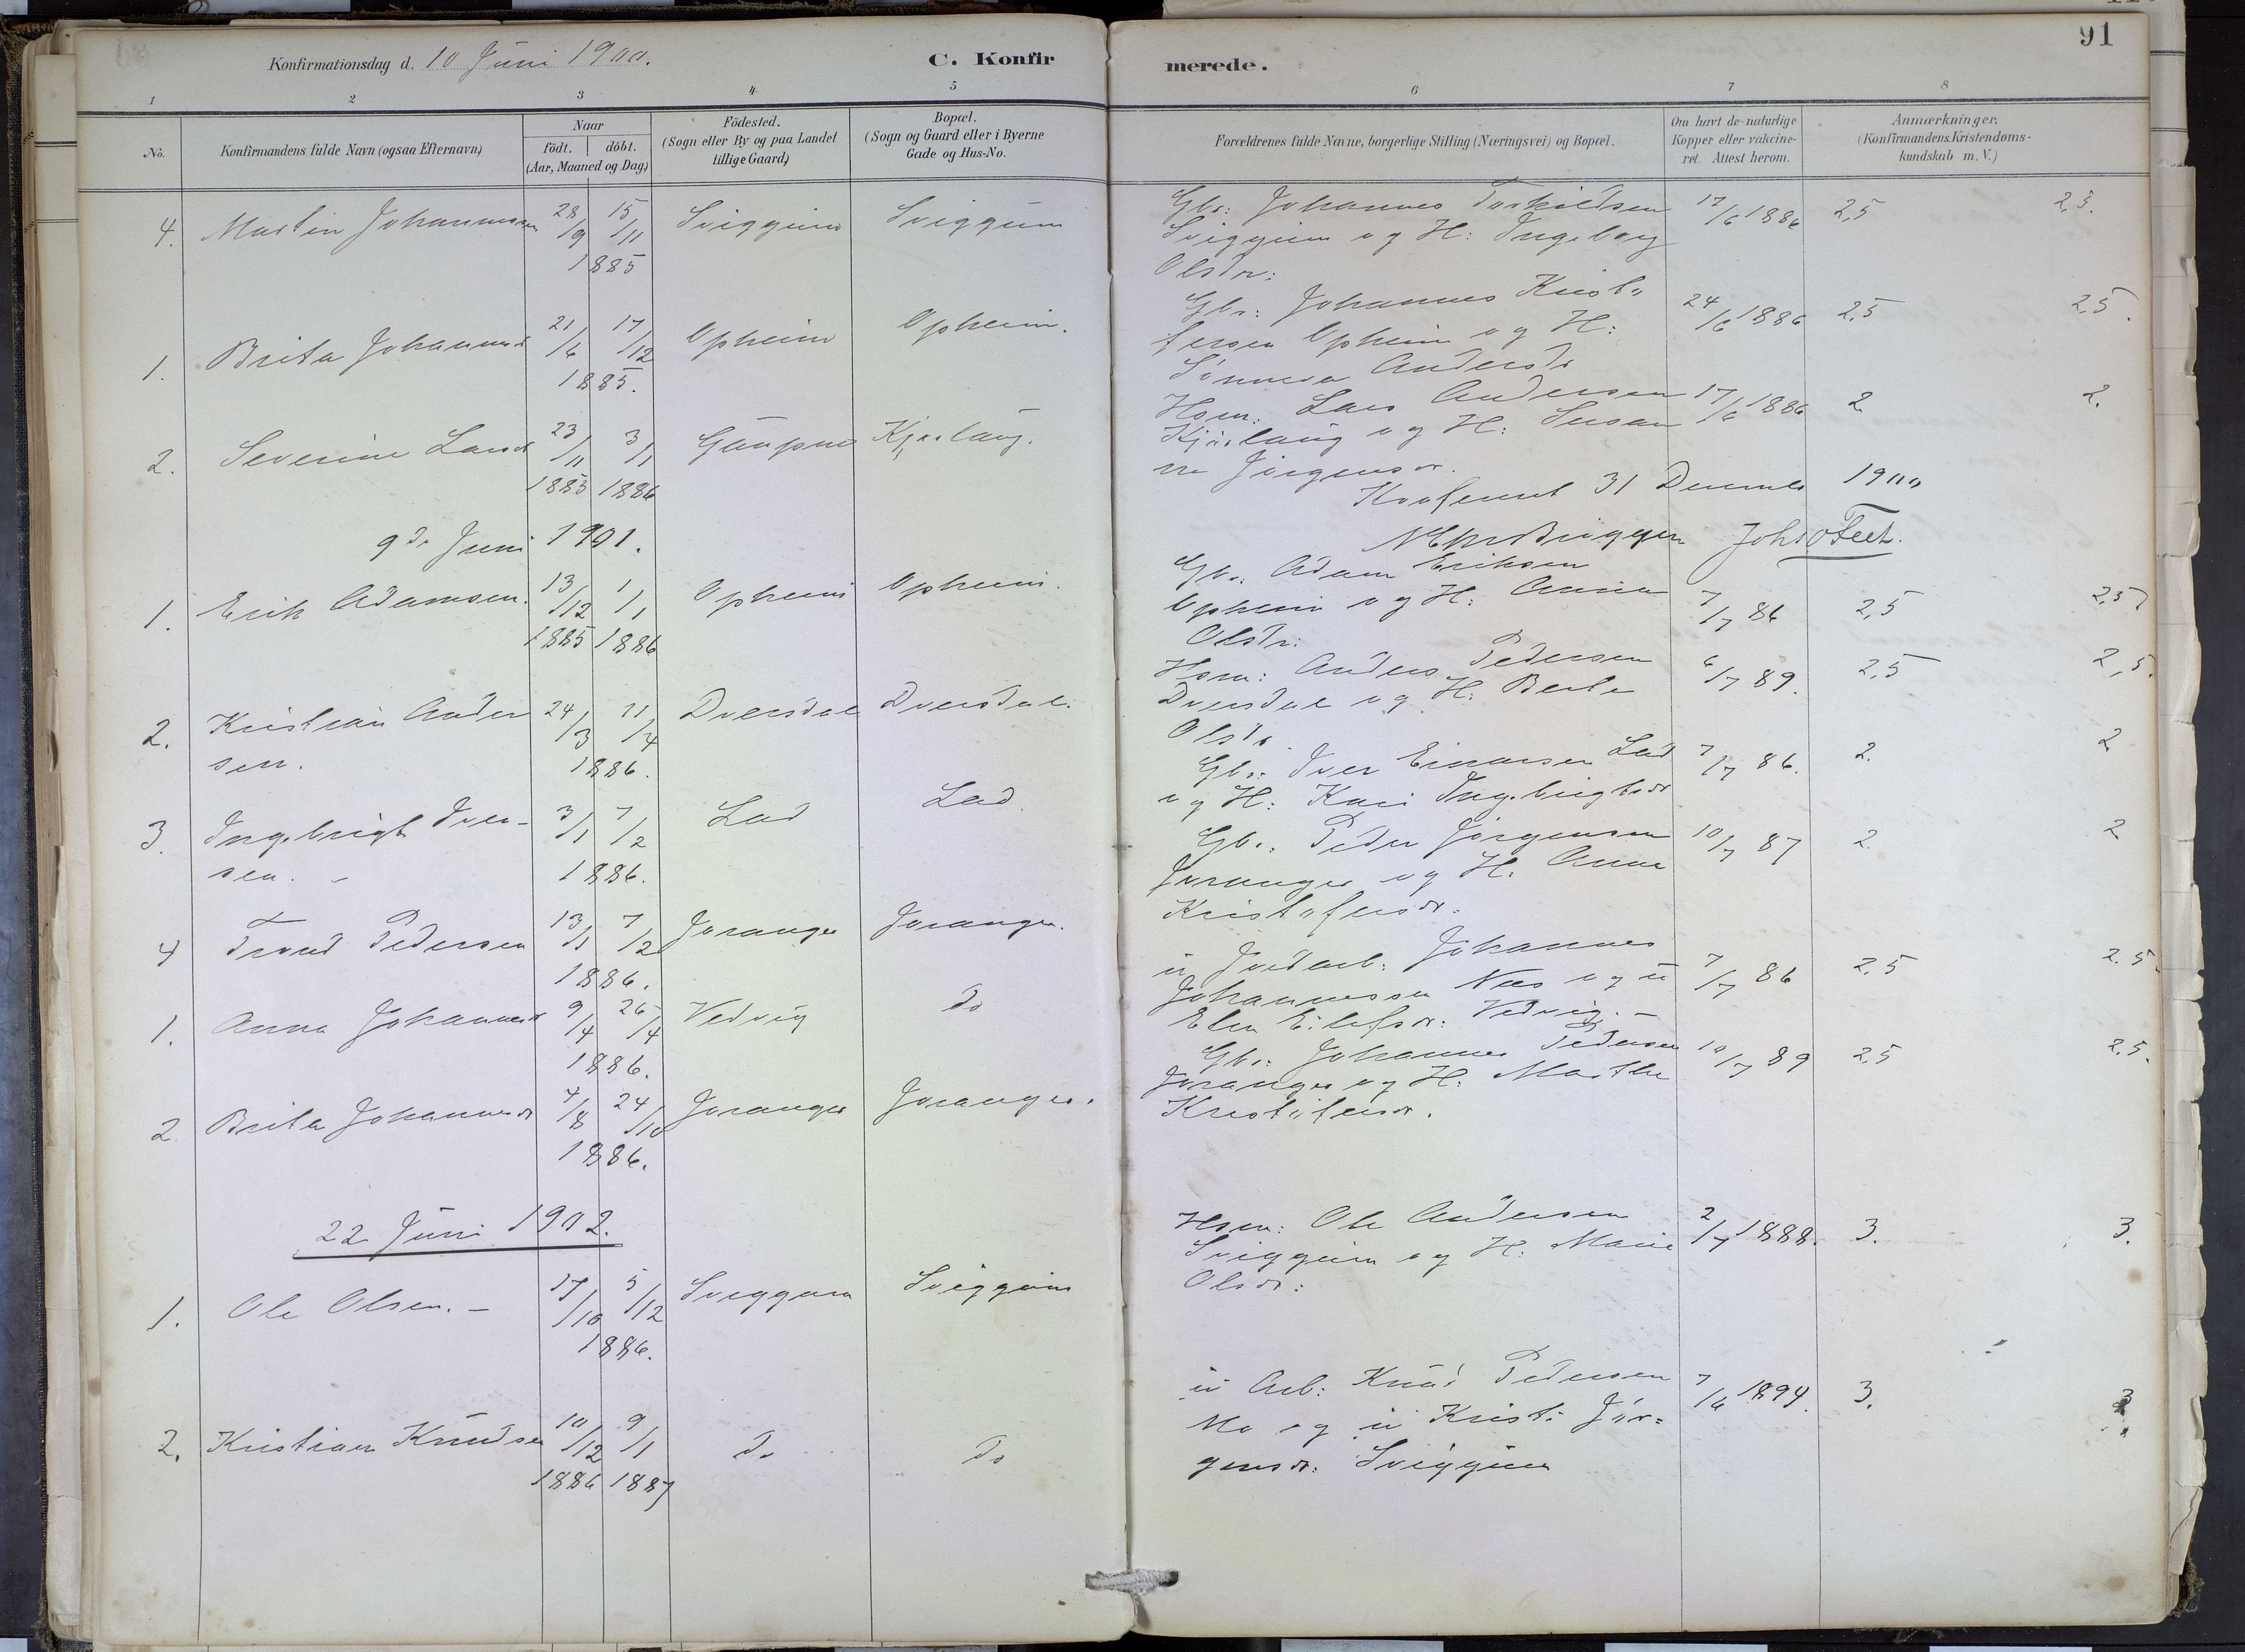 91
Konfirmationsdag d. 10 Juni 1900.
C. Konfirmerede.
1 2 3 4 5 6 7 8
No.
Konfirmandens fulde Navn (ogsaa Efternavn)
Naar
födt. döbt.
(Aar, Maaned og Dag)
Födested.
(Sogn eller By og paa Landet
tillige Gaard)
Bopæl.
(Sogn og Gaard eller i Byerne
Gade og Hus-No.
Forældrenes fulde Navne, borgerlige Stilling (Næringsvei) og Bopæl.
Om havt de naturlige
Kopper eller vakcine-
ret. Attest herom.
Anmærkninger.
(Konfirmandens Kristendoms-
kundskab m. V.)
4. Martin Johannessen 28/9 15/11 1885 Sviggum Sviggum
Gbr: Johannes Torkildsen 17/6 1886 2,5 2,5.
Sviggum og H: Ingeborg
Olsdr:
1. Brita Johannesd 21/6 17/12 1885. Opheim Opheim.
Gbr: Johannes Kristo 24/6 1886 2,5 2,5.
fersen Opheim og H:
Sönneva Andersdr
2. Severine Larsd 23/11 1885 3/1 1886 Gaupne Kjærlaug.
Hsm: Lars Andersen 17/6 1886 2 2.
Kjærlaug og H: Susan
ne Jörgensdr.
Konferert 31 December 1900
Joh. O Feet.
9de Juni 1901.
1. Erik Adamsen. 13/12 1885 1/1 1886 Opheim Opheim.
Gbr: Adam Eriksen
Opheim og H: Anna 7/7 86 2,5 2,5
Olsdr:
2. Kristian Ander 24/3 11/4 1886. Dversdal Dversdal.
sen.
Hsm: Anders Pedersen 6/7 89. 2,5 2,5.
Dversdal og H: Berte
Olsdr.
3. Ingebrigt Iver- 3/1 7/2 1886. Lad Lad.
sen. -
Gbr: Iver Einarsen Lad 7/7 86. 2. 2
og H: Kari Ingebrigtsdr
4 Trond Pedersen 13/1 7/2 1886. Joranger Joranger.
Gbr: Peder Jörgensen 10/7 87 2. 2
Joranger og H. Anna
Kristofersdr.
1. Anna Johannesd 9/4 26/4 1886. Vedvig do
u Jordarb: Johannes
Johannessen Næs og u 7/7 86 2,5 2.5.
Elen Eilefsdr: Vedvig. -
2 Brita Johannesdr 4/8 24/10 1886. Joranger Joranger.
Gbr: Johannes Pedersen 10/7 89 2,5 2,5.
Joranger og H: Marthe
Kristofersdr.
22 Juni 1902.
1. Ole Olsen. - 17/10 5/12 1886. Sviggum Sviggum
Hsm: Ole Andersen 2/7 1888. 3. 3.
Sviggum og H: Marie
Olsdr:
2. Kristian Knudsen 10/12 1886 9/1 1887 do do
u Arb: Knud Pedersen 7/6 1894. 3. 3
Mo og u Kristi Jör=
gensdr: Sviggum